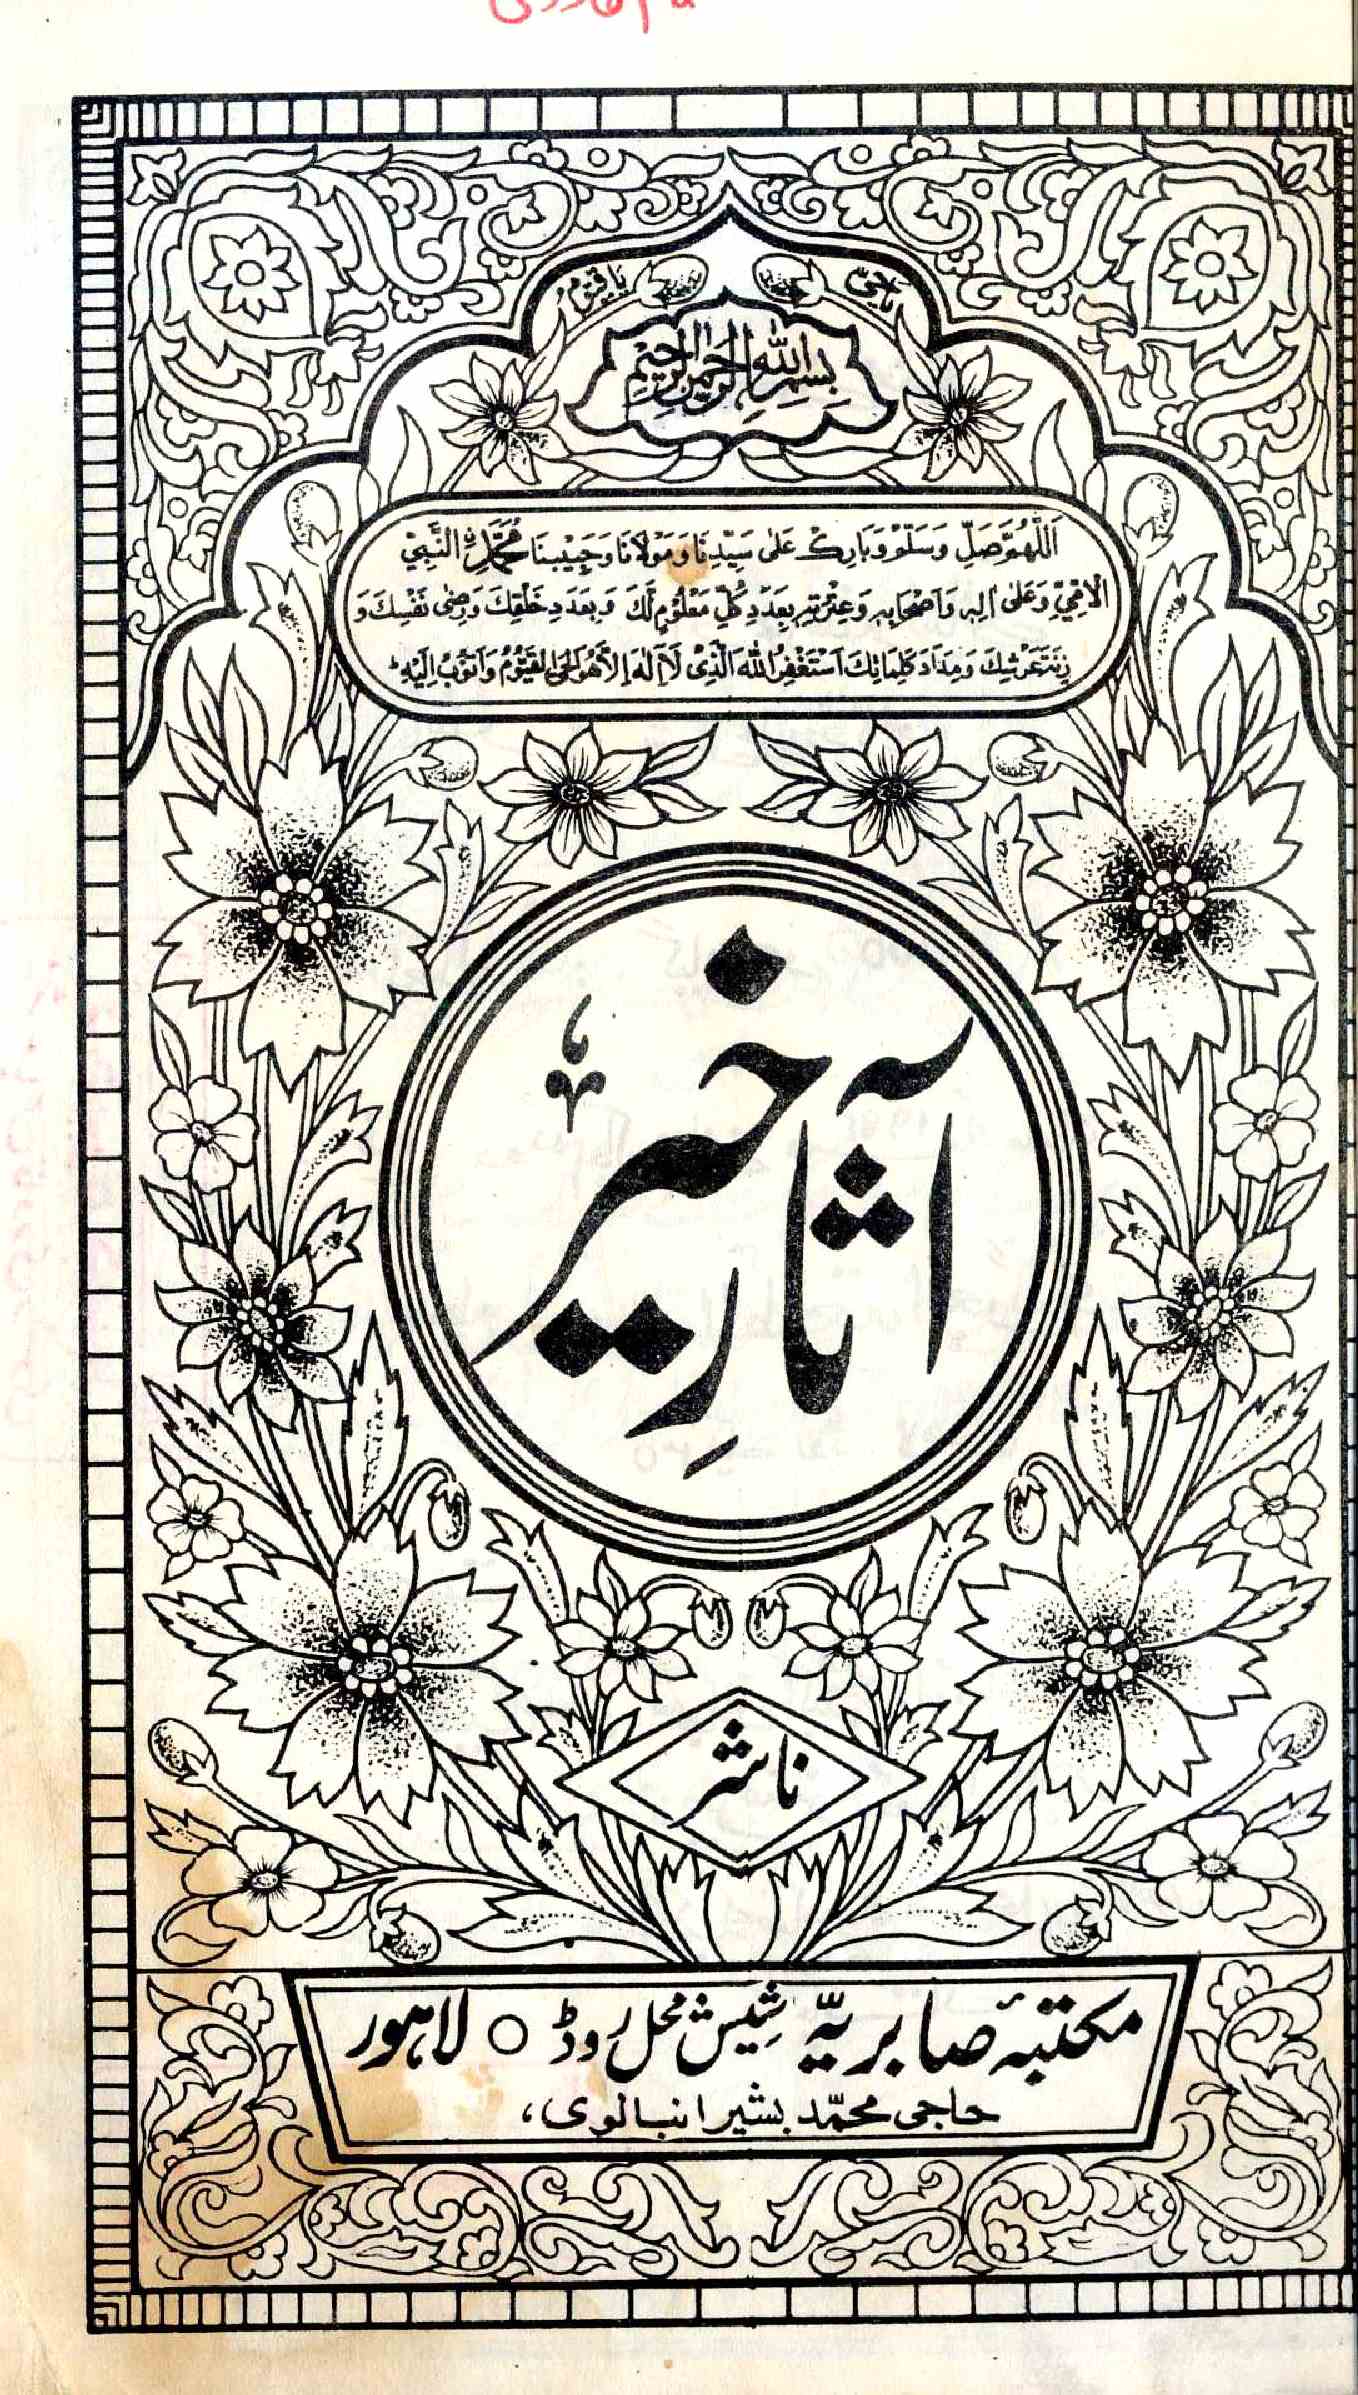 یاحیّ یاقیّوم
بِسْمِ اللّٰهِ الرَّحْمٰنِ الرَّحِیْمِ
اَللّٰهُمَّ صَلِّ وَسَلِّمْ وَبَارِكْ عَلٰی سَیِّدِنَا وَمَوْلَانَا وَحَبِیْبِنَا مُحَمَّدِنِ النَّبِیِّ
الْاُمِّیِّ وَعَلٰی اٰلِهٖ وَاَصْحَابِهٖ وَعِتْرَتِهٖ بِعَدَدِ كُلِّ مَعْلُوْمٍ لَّكَ وَبِعَدَدِ خَلْقِكَ وَرِضٰی نَفْسِكَ وَ
زِنَةِ عَرْشِكَ وَمِدَادَ كَلِمَاتِكَ اَسْتَغْفِرُ اللّٰهَ الَّذِیْ لَآ اِلٰهَ اِلَّا هُوَ الْحَیُّ الْقَیُّوْمُ وَاَتُوْبُ اِلَیْهِ ط
آثارِ خیر
ناشر
مکتبۂ صابریّہ شِیش محل روڈ ○ لاہور
حاجی محمّد بشیر انبالوی،